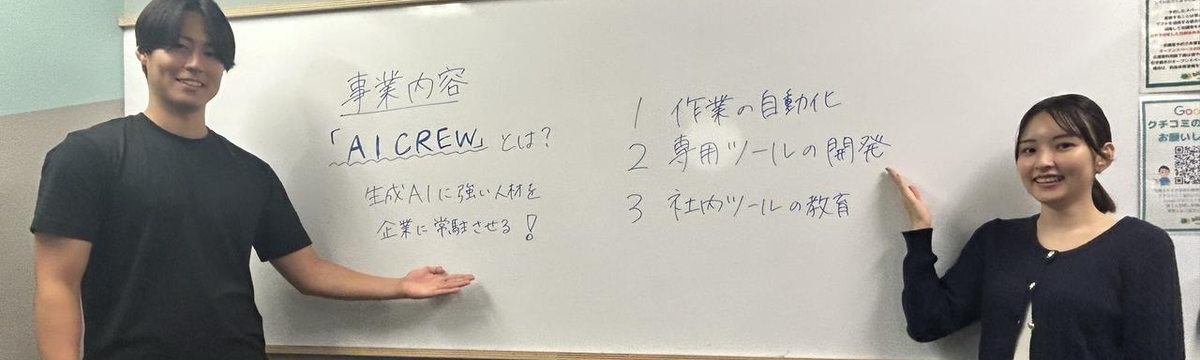 事業内容
「AI CREW」とは?
生成AIに強い人材を
企業に常駐させる!
1 作業の自動化
2 専用ツールの開発
3 社内ツールの教育
クチコミの
お願いし